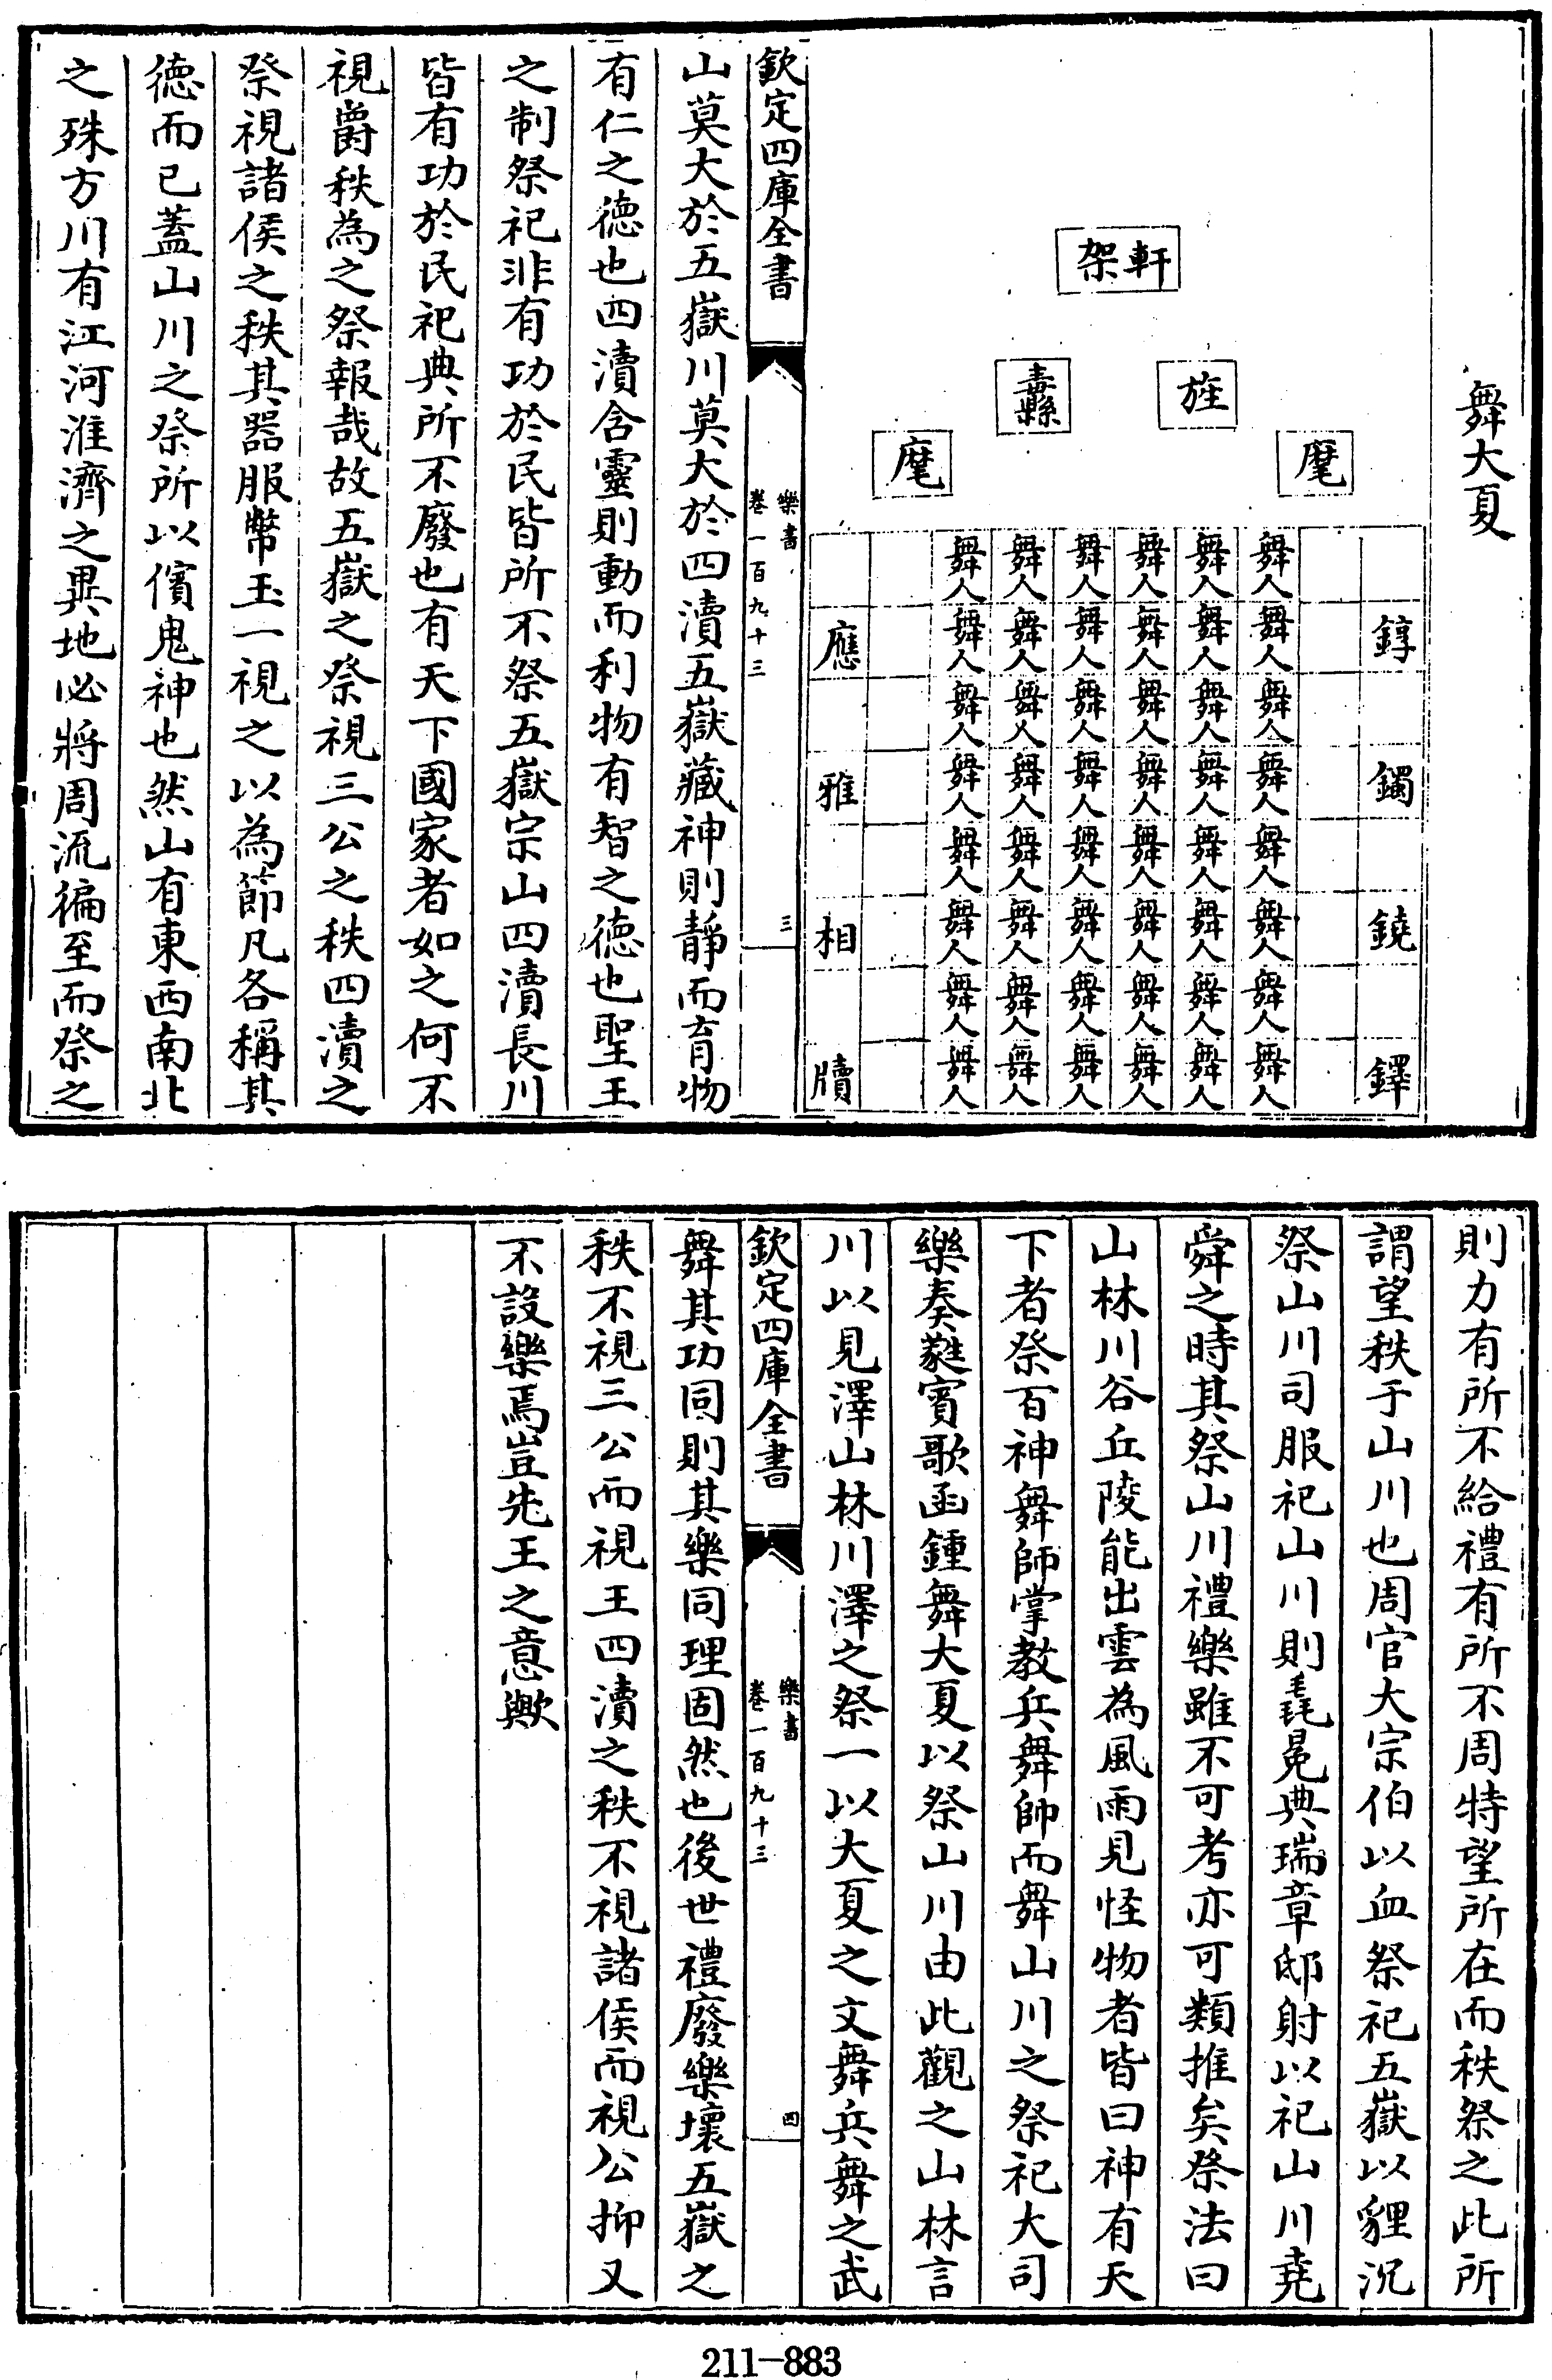 舞大夏
軒架
旌
纛
麾
麾
錞 鐲 鐃 鐸
舞人 舞人 舞人 舞人 舞人 舞人 舞人 舞人
舞人 舞人 舞人 舞人 舞人 舞人 舞人 舞人
舞人 舞人 舞人 舞人 舞人 舞人 舞人 舞人
舞人 舞人 舞人 舞人 舞人 舞人 舞人 舞人
舞人 舞人 舞人 舞人 舞人 舞人 舞人 舞人
舞人 舞人 舞人 舞人 舞人 舞人 舞人 舞人
應 雅 相 牘
欽定四庫全書
樂書
卷一百九十三
三
山莫大於五嶽川莫大於四瀆五嶽藏神則靜而育物
有仁之德也四瀆含靈則動而利物有智之德也聖王
之制祭祀非有功於民皆所不祭五嶽宗山四瀆長川
皆有功於民祀典所不廢也有天下國家者如之何不
視爵秩為之祭報哉故五嶽之祭視三公之秩四瀆之
祭視諸侯之秩其器服幣玉一視之以為節凡各稱其
德而已蓋山川之祭所以儐鬼神也然山有東西南北
之殊方川有江河淮濟之異地必將周流徧至而祭之
則力有所不給禮有所不周特望所在而秩祭之此所
謂望秩于山川也周官大宗伯以血祭祀五嶽以貍沉
祭山川司服祀山川則毳冕典瑞章邸射以祀山川堯
舜之時其祭山川禮樂雖不可考亦可類推矣祭法曰
山林川谷丘陵能出雲為風雨見怪物者皆曰神有天
下者祭百神舞師掌教兵舞帥而舞山川之祭祀大司
樂奏蕤賓歌函鍾舞大夏以祭山川由此觀之山林言
川以見澤山林川澤之祭一以大夏之文舞兵舞之武
欽定四庫全書
樂書
卷一百九十三
四
舞其功同則其樂同理固然也後世禮廢樂壞五嶽之
秩不視三公而視王四瀆之秩不視諸侯而視公抑又
不設樂焉豈先王之意歟
211-883